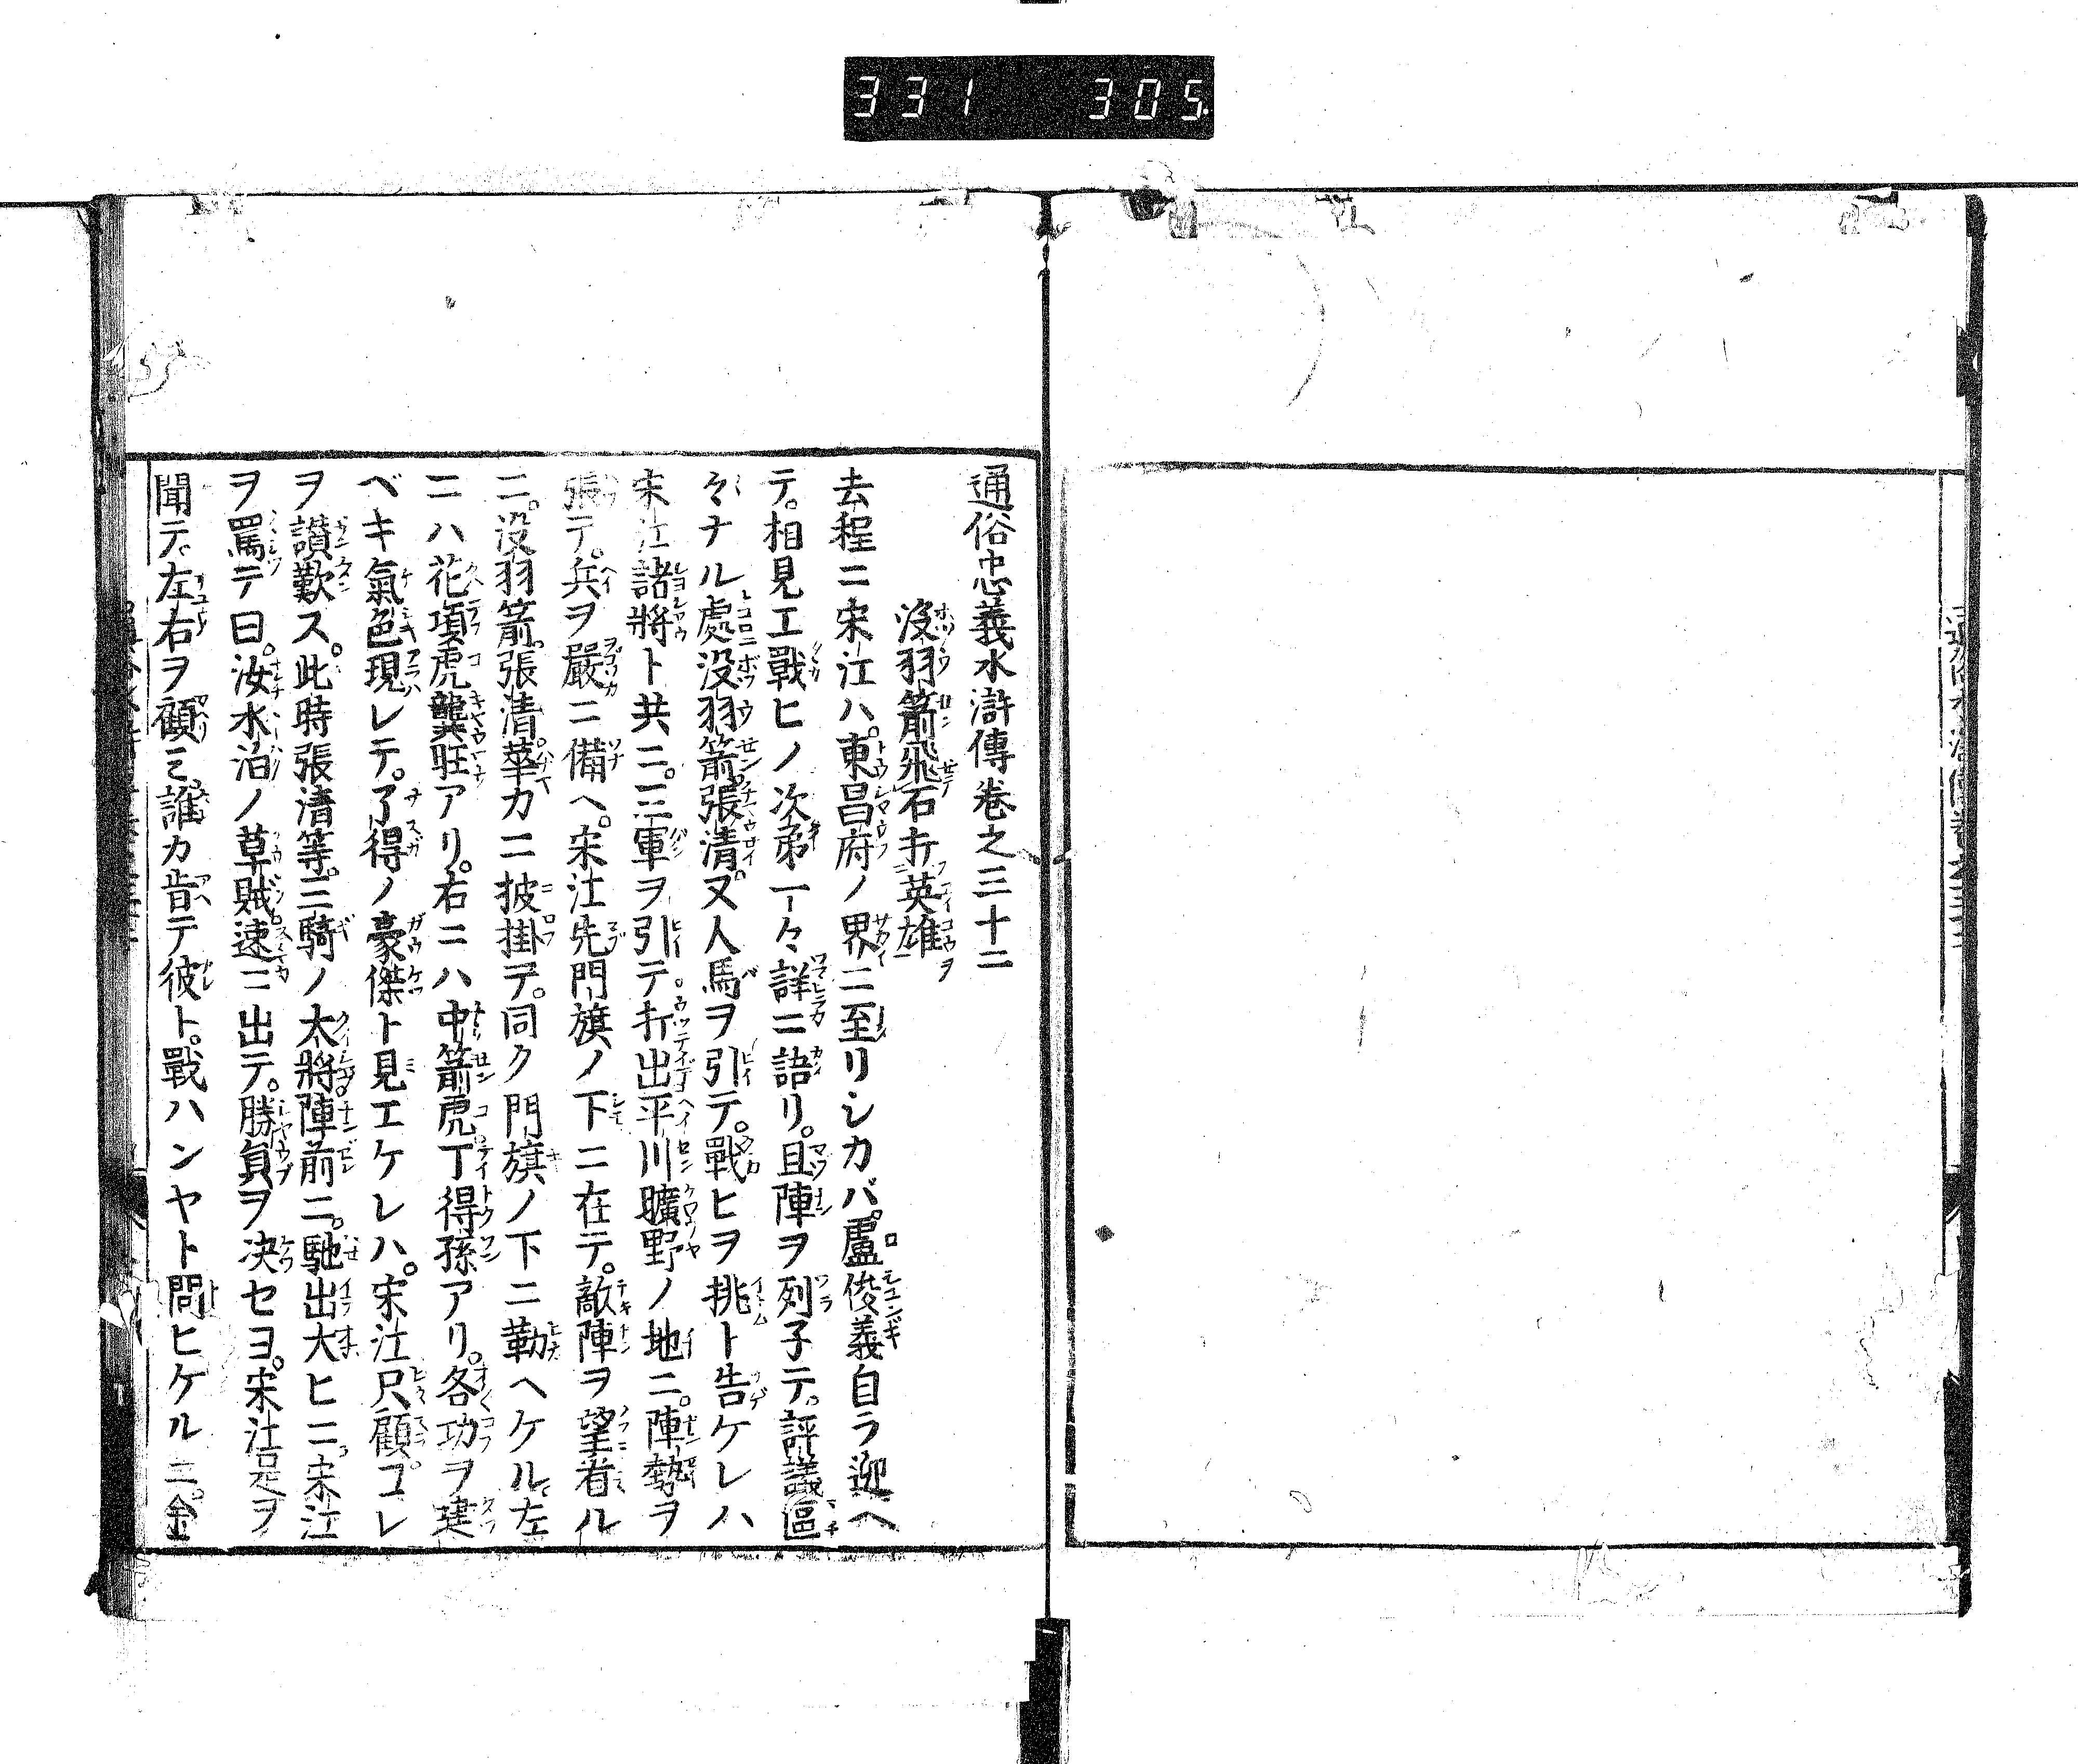 331 305
通俗忠義水滸傳卷之三十二
没羽箭飛石打英雄
去程ニ宋江ハ。東昌府ノ界ニ至リシカバ。盧俊義自ラ迎ヘ
テ。相見エ戰ヒノ次弟一々詳ニ語リ。且陣ヲ列子テ。評議區
々ナル處没羽箭。張清。又人馬ヲ引テ。戰ヒヲ挑ト告ケレハ
宋江諸將ト共ニ。三軍ヲ引テ打出平川曠野ノ地ニ。陣勢ヲ
張テ。兵ヲ嚴ニ備ヘ。宋江先門旗ノ下ニ在テ。敵陣ヲ望看ル
ニ。没羽箭。張清。華カニ披掛テ。同ク門旗ノ下ニ勒ヘケル左
ニハ花項虎龔旺アリ。右ニハ中箭虎丁得孫アリ。各功ヲ建
ベキ氣色現レテ。了得ノ豪傑ト見エケレハ。宋江只顧コレ
ヲ讃歎ス。此時張清等。三騎ノ太將陣前ニ。馳出大ヒニ宋江
ヲ罵テ曰。汝水泊ノ草賊速ニ出テ。勝負ヲ决セヨ。宋江是ヲ
聞テ。左右ヲ顧ミ誰カ肯テ彼ト。戰ハンヤト問ヒケルニ。金